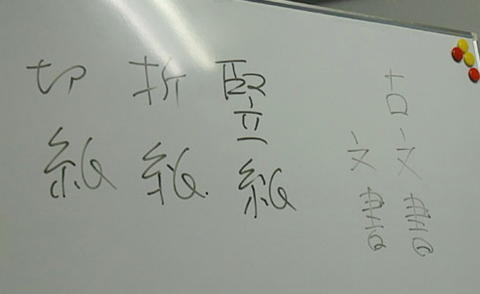 古文書
文書
竪紙
折紙
切紙